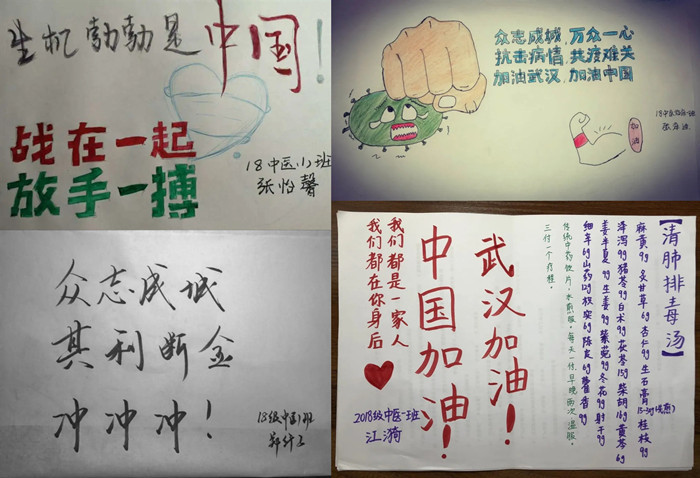 生机勃勃是中国！
战在一起
放手一搏
18中医(1)班
张怡馨
众志成城,万众一心
抗击病情,共疫难关
加油武汉,加油中国
加油
众志成城
其利断金
冲冲冲！
18级中医1班
【清肺排毒汤】
麻黄9g 炙甘草6g 杏仁9g 生石膏15-30g(先煎) 桂枝9g
泽泻9g 猪苓9g 白术9g 茯苓15g 柴胡16g 黄芩6g
姜半夏9g 生姜9g 紫菀9g 冬花9g 射干9g
细辛6g 山药12g 枳实6g 陈皮6g 藿香9g
传统中药饮片,水煎服。每天一付,早晚两次,温服。
三付一个疗程。
武汉加油！
中国加油！
我们都是一家人
我们都在你身后
2018级中医一班
江漪